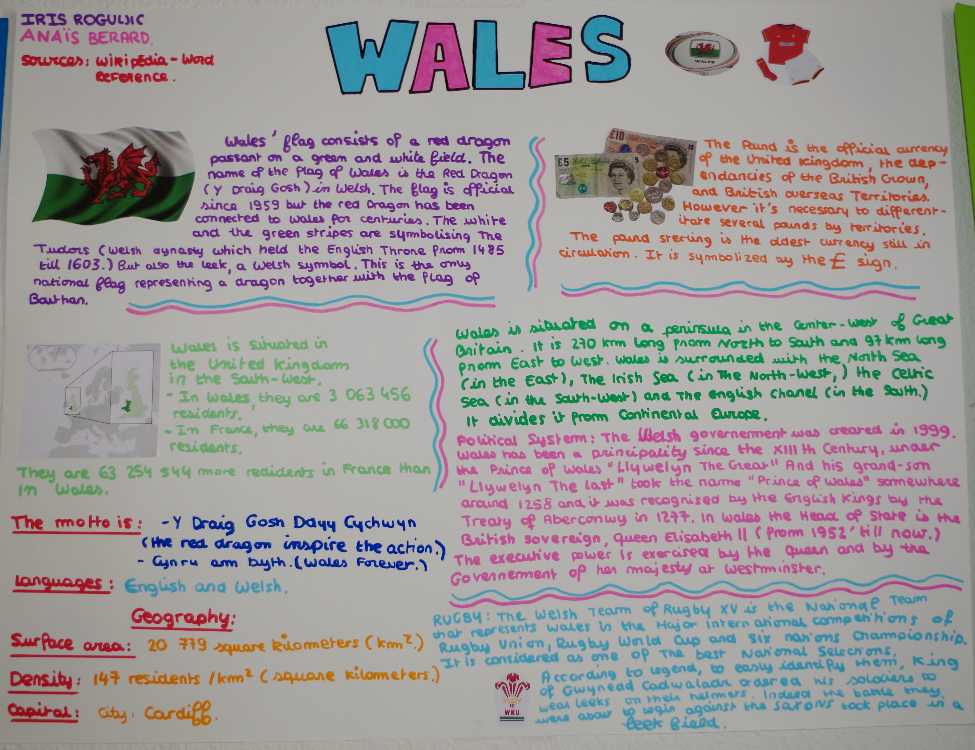 IRIS ROGULJIC
ANAÏS BERARD.
Sources: Wikipédia - Word
Reference.
WALES
WALES
Wales' flag consists of a red dragon
passant on a green and white field. The
name of the flag of Wales is the Red Dragon
(Y Draig Gosh) in Welsh. The flag is official
since 1959 but the red Dragon has been
connected to Wales for centuries. The white
and the green stripes are symbolising The
Tudors (Welsh dynasty which held the English Throne from 1485
till 1603.) But also the leek, a Welsh symbol. This is the only
national flag representing a dragon together with the flag of
Bouthan.
£5
£10
The Pound is the official currency
of the United Kingdom, the dep-
endancies of the British Crown,
and British overseas Territories.
However it's necessary to different-
iate several pounds by territories.
The pound sterling is the oldest currency still in
circulation. It is symbolized by the £ sign.
Wales is situated in
the United Kingdom
in the South-West.
- In Wales they are 3 063 456
residents.
- In France, they are 66 318 000
residents.
They are 63 254 544 more residents in France than
in Wales.
Wales is situated on a peninsula in the Center-West of Great
Britain. It is 270 km long from North to South and 97 km long
from East to West. Wales is surrounded with the North Sea
(in the East), The Irish Sea (in The North-West,) the Celtic
Sea (in the South-West) and The english chanel (in the South.)
It divides it from Continental Europe.
Political System: The Welsh governement was created in 1999.
Wales has been a principality since the XIII th Century, under
the Prince of Wales "Llywelyn The Great" And his grand-son
"Llywelyn The last" took the name "Prince of Wales" somewhere
around 1258 and it was recognised by the English Kings by the
Treaty of Aberconwy in 1277. In Wales the Head of State is the
British sovereign, Queen Elisabeth II (from 1952' till now.)
The executive power is exercised by the Queen and by the
Governement of her majesty at Westminster.
The motto is: - Y Draig Gosh Dayy Cychwyn
(the red dragon inspire the action.)
- Cynru am byth. (Wales Forever.)
Languages: English and Welsh.
Geography:
Surface area: 20 779 square kilometers (km².)
Density: 147 residents /km² (square kilometers.)
Capital: City: Cardiff.
RUGBY: The Welsh Team of Rugby XV is the National Team
that represents Wales in the Major international competitions of
Rugby Union, Rugby World Cup and Six nations Championship.
It is considered as one of The best National Selections.
According to legend, to easily identify them, King
of Gwynedd Cadwaladr ordered his soldiers to
wear leeks on their helmets. Indeed the battle they
were about to begin against the Saxons took place in a
leek field.
WRU